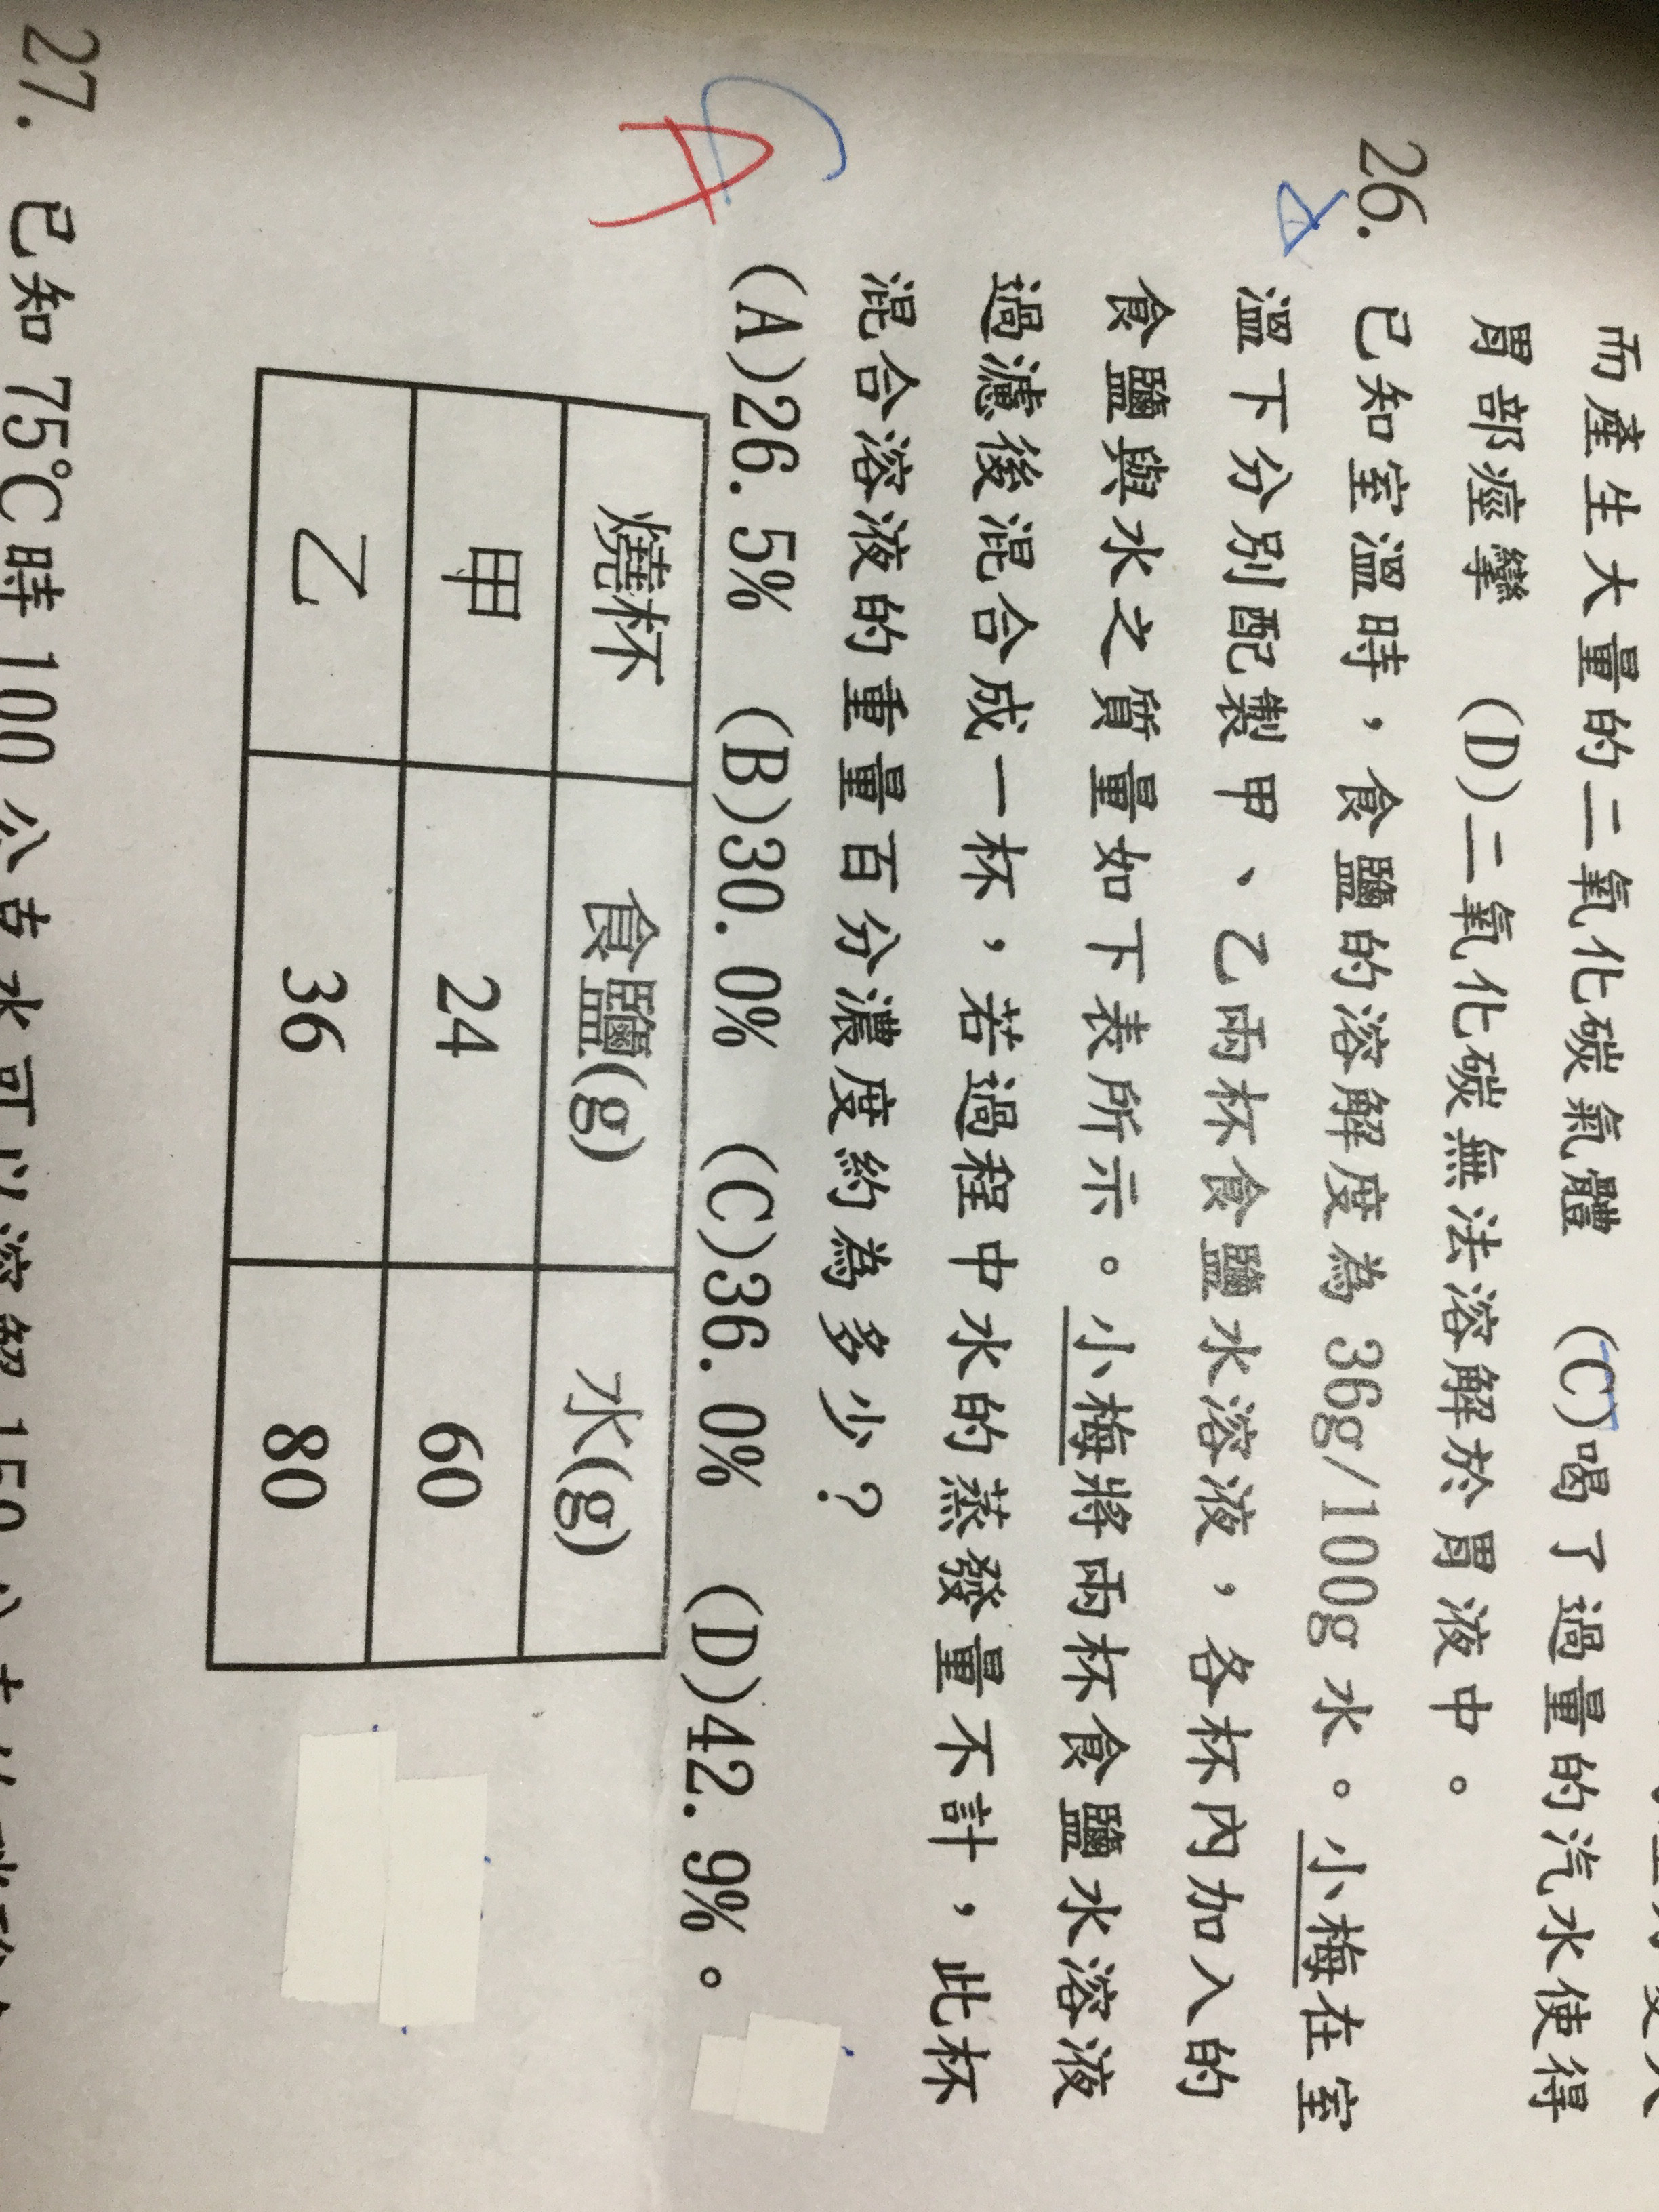 而產生大量的二氧化碳氣體 (C)喝了過量的汽水使得
胃部痙攣 (D)二氧化碳無法溶解於胃液中。
26. 已知室溫時，食鹽的溶解度為 36g/100g 水。小梅在室
溫下分別配製甲、乙兩杯食鹽水溶液，各杯內加入的
食鹽與水之質量如下表所示。小梅將兩杯食鹽水溶液
過濾後混合成一杯，若過程中水的蒸發量不計，此杯
混合溶液的重量百分濃度約為多少？
A
(A)26.5% (B)30.0% (C)36.0% (D)42.9%。
燒杯 食鹽(g) 水(g)
甲 24 60
乙 36 80
27. 已知 75℃時 100 公克水可以溶解 150